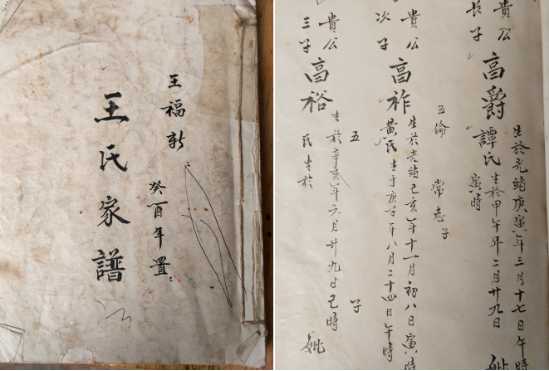 王福新
王氏家譜
癸酉年置
貴公
長子
高爵
生於光緒庚寅年三月十七日午時
譚氏
生於甲午年二月廿九日
寅時
妣
五倫
常忠子
貴公
次子
高祚
生於光緒己亥年十一月初八日寅時
黄氏
生于庚子年八月二十四日午時
五
子
貴公
三子
高裕
生於辛亥年六月廿九日己時
妣
氏生於